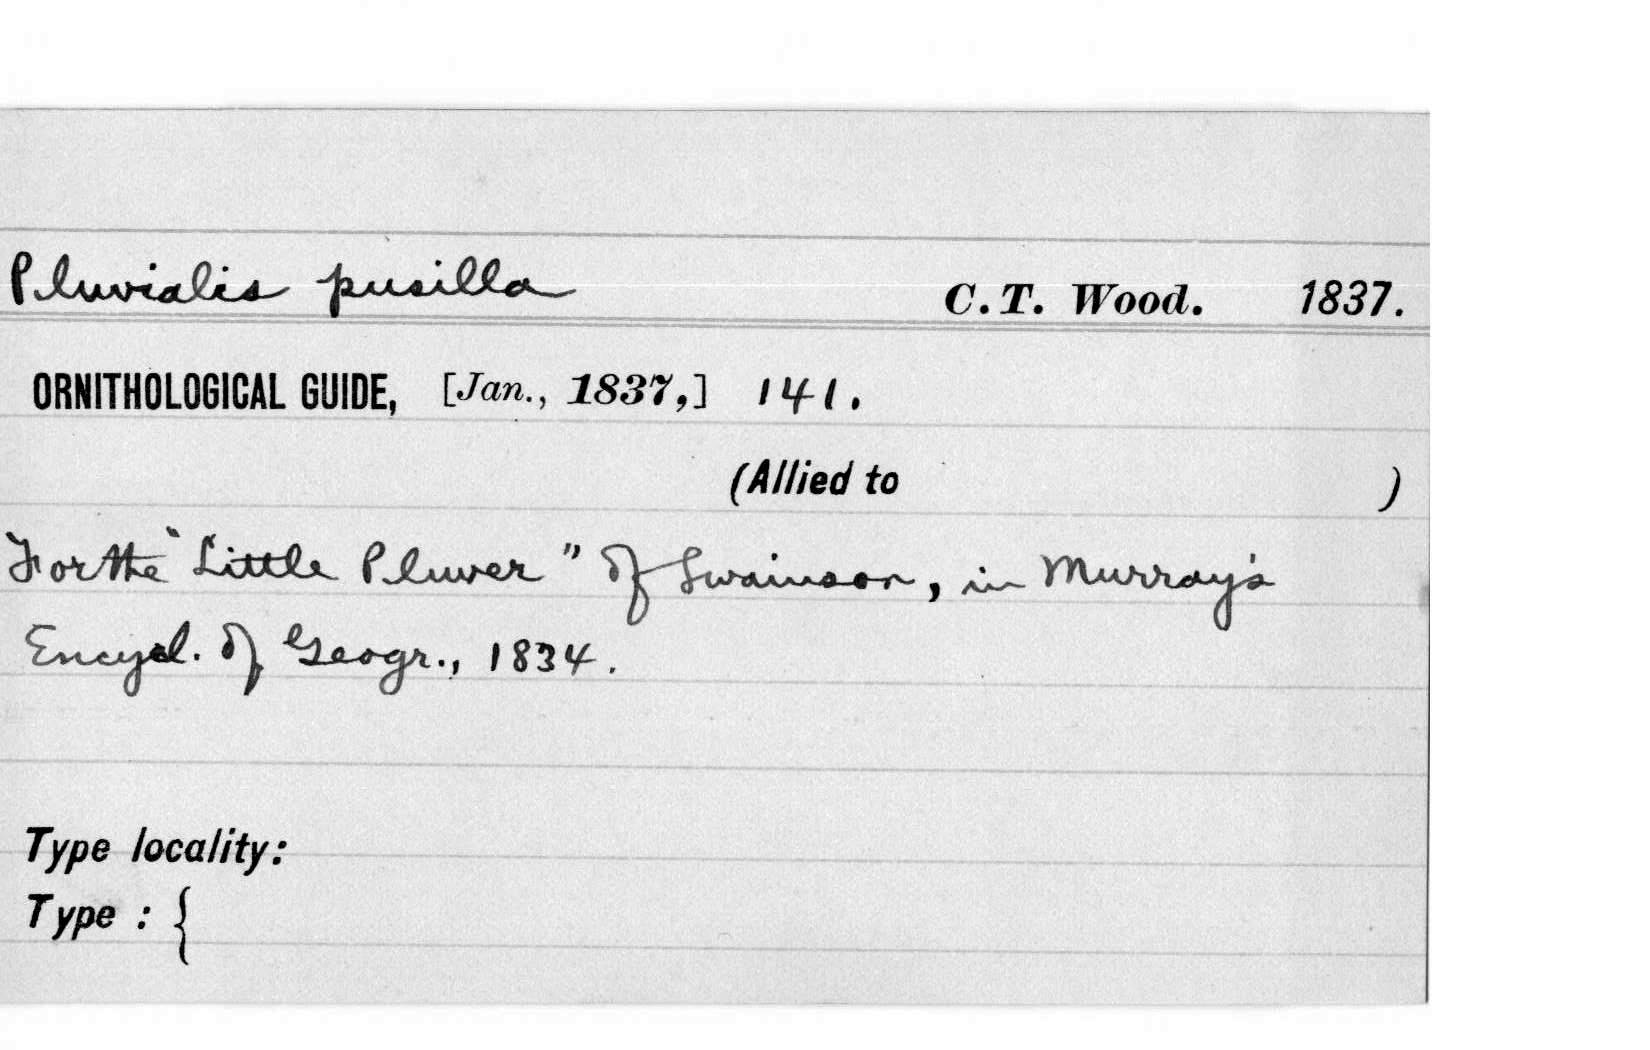 Pluvialis pusilla C.T. Wood. 1837.
ORNITHOLOGICAL GUIDE, [Jan., 1837,] 141.
(Allied to )
For the "Little Pluver" of Swainson, in Murray's
Encycl. of Geogr., 1834.
Type locality:
Type : {